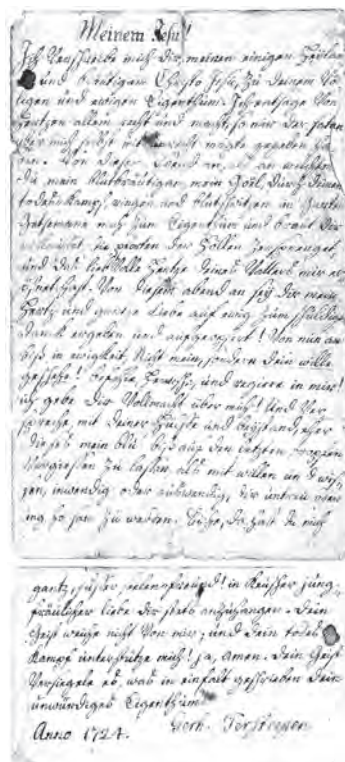 Meinem Jesu!
Ich verschreibe mich dir, meinem einigen Heylan-
und Bräutigam Christo Jesu, zu deinem völ-
ligen und ewigen Eigenthum. Ich entsage von
Hertzen allem recht und macht, so mir der Satan
über mich selbst mit unrecht mögte gegeben ha-
ben. Von diesem Abend an, als an welchem
du mein Blutbräutigam, mein Goel, durch deinen
todes Kampf, ringen und blutschwitzen im Garten
Gethsemane mich zum Eigenthum und Braut dir
die pforten der Höllen zersprenget,
und das liebvolle Hertze deines Vatters mir er-
öfnet hast. Von diesem abend an sey dir mein
Hertz und gantze Liebe auf ewig zum schuldigen
danck ergeben und aufgeopfert! Von nun an
biß in ewigkeit, Nicht mein, sondern dein wille
geschehe! befehle, herrsche, und regiere in mir!
ich gebe dir Vollmacht über mich! Und Ver-
spreche, mit deiner Hülfe und beystand, eher
dieses mein blut biß auf den letzten tropfen
Vergiessen zu lassen, als mit willen und wis-
sen, inwendig oder auswendig, dir untreu oder
zu werden. Siehe, da hast du mich
gantz, süsser seelenfreund! in keuscher jung-
fräulicher liebe dir stets anzuhangen. Dein
Geist weiche nicht von mir; und dein todes
Kampf unterstütze mich! ja, amen. Dein Geist
Versiegele es, was in einfalt geschrieben Dein
unwürdiges Eigenthum
Anno 1724. Gerh. Tersteegen